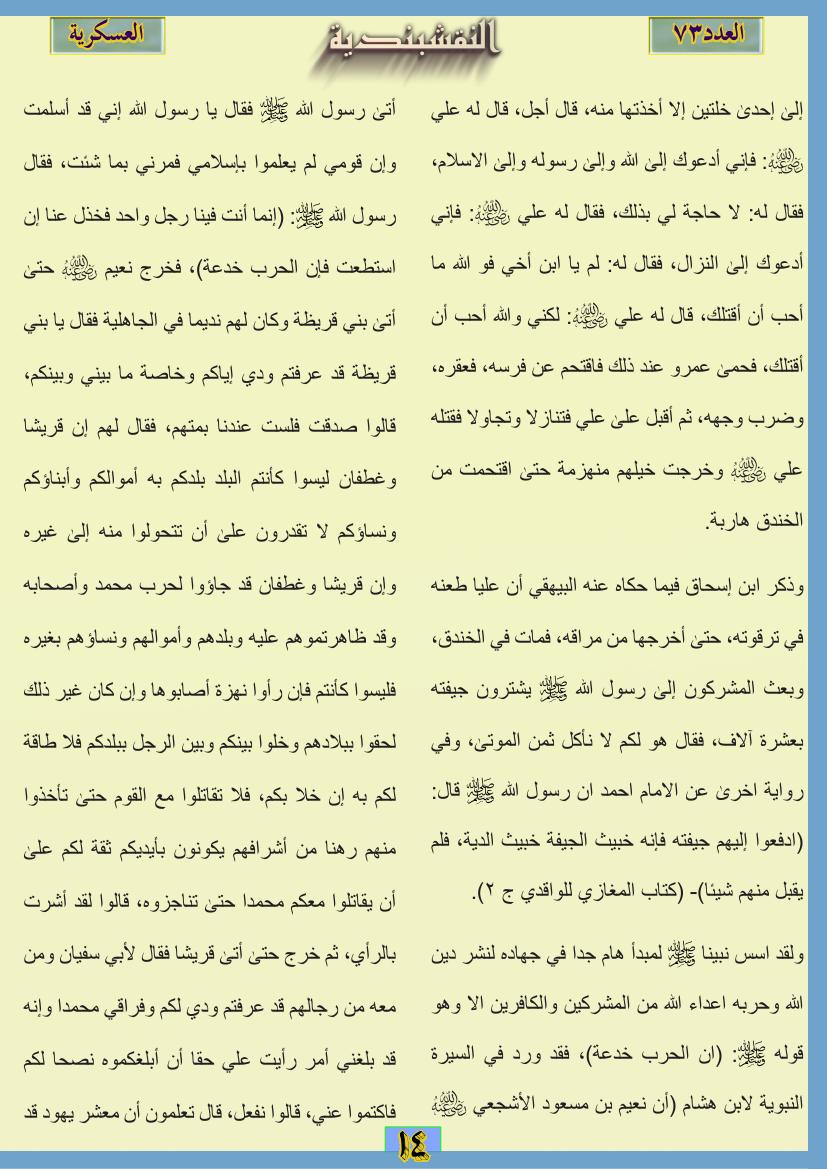 العدد٧٣
النقشبندية
العسكرية
إلىٰ إحدىٰ خلتين إلا أخذتها منه، قال أجل، قال له علي
رضي الله عنه: فإني أدعوك إلىٰ الله وإلىٰ رسوله وإلىٰ الاسلام،
فقال له: لا حاجة لي بذلك، فقال له علي رضي الله عنه: فإني
أدعوك إلىٰ النزال، فقال له: لم يا ابن أخي فو الله ما
أحب أن أقتلك، قال له علي رضي الله عنه: لكني والله أحب أن
أقتلك، فحمىٰ عمرو عند ذلك فاقتحم عن فرسه، فعقره،
وضرب وجهه، ثم أقبل علىٰ علي فتنازلا وتجاولا فقتله
علي رضي الله عنه وخرجت خيلهم منهزمة حتىٰ اقتحمت من
الخندق هاربة.
وذكر ابن إسحاق فيما حكاه عنه البيهقي أن عليا طعنه
في ترقوته، حتىٰ أخرجها من مراقه، فمات في الخندق،
وبعث المشركون إلىٰ رسول الله ﷺ يشترون جيفته
بعشرة آلاف، فقال هو لكم لا نأكل ثمن الموتىٰ، وفي
رواية اخرىٰ عن الامام احمد ان رسول الله ﷺ قال:
(ادفعوا إليهم جيفته فإنه خبيث الجيفة خبيث الدية، فلم
يقبل منهم شيئا)- (كتاب المغازي للواقدي ج ٢).
ولقد اسس نبينا ﷺ لمبدأ هام جدا في جهاده لنشر دين
الله وحربه اعداء الله من المشركين والكافرين الا وهو
قوله ﷺ: (ان الحرب خدعة)، فقد ورد في السيرة
النبوية لابن هشام (أن نعيم بن مسعود الأشجعي رضي الله عنه
أتىٰ رسول الله ﷺ فقال يا رسول الله إني قد أسلمت
وإن قومي لم يعلموا بإسلامي فمرني بما شئت، فقال
رسول الله ﷺ: (إنما أنت فينا رجل واحد فخذل عنا إن
استطعت فإن الحرب خدعة)، فخرج نعيم رضي الله عنه حتىٰ
أتىٰ بني قريظة وكان لهم نديما في الجاهلية فقال يا بني
قريظة قد عرفتم ودي إياكم وخاصة ما بيني وبينكم،
قالوا صدقت فلست عندنا بمتهم، فقال لهم إن قريشا
وغطفان ليسوا كأنتم البلد بلدكم به أموالكم وأبناؤكم
ونساؤكم لا تقدرون علىٰ أن تتحولوا منه إلىٰ غيره
وإن قريشا وغطفان قد جاؤوا لحرب محمد وأصحابه
وقد ظاهرتموهم عليه وبلدهم وأموالهم ونساؤهم بغيره
فليسوا كأنتم فإن رأوا نهزة أصابوها وإن كان غير ذلك
لحقوا ببلادهم وخلوا بينكم وبين الرجل ببلدكم فلا طاقة
لكم به إن خلا بكم، فلا تقاتلوا مع القوم حتىٰ تأخذوا
منهم رهنا من أشرافهم يكونون بأيديكم ثقة لكم علىٰ
أن يقاتلوا معكم محمدا حتىٰ تناجزوه، قالوا لقد أشرت
بالرأي، ثم خرج حتىٰ أتىٰ قريشا فقال لأبي سفيان ومن
معه من رجالهم قد عرفتم ودي لكم وفراقي محمدا وإنه
قد بلغني أمر رأيت علي حقا أن أبلغكموه نصحا لكم
فاكتموا عني، قالوا نفعل، قال تعلمون أن معشر يهود قد
١٤